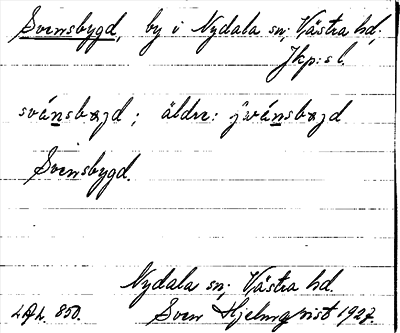 Svensbygd, by i Nydala sn; Västra hd,
Jkp:s l.
svánsbʏjd; äldre: ʃwánsbʏjd
Svensbygd.
Nydala sn; Västra hd.
850. Sven Hjelmqvist 1927.